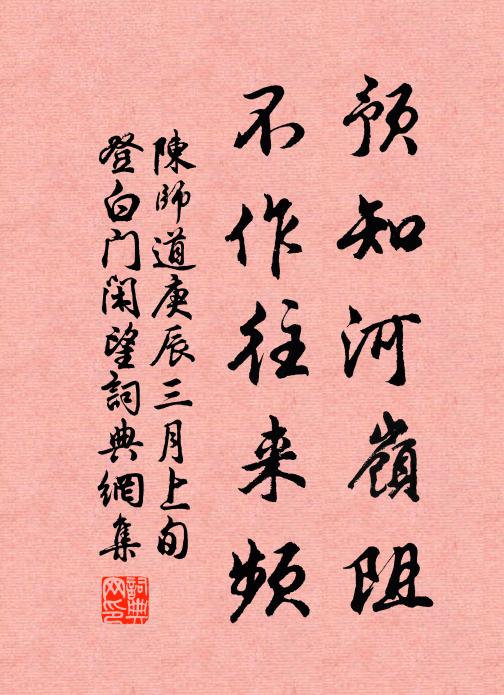 預知河嶺阻
不作往来頻
陳師道庚辰三月上旬
登白门闲望詞典網集
詞典网印